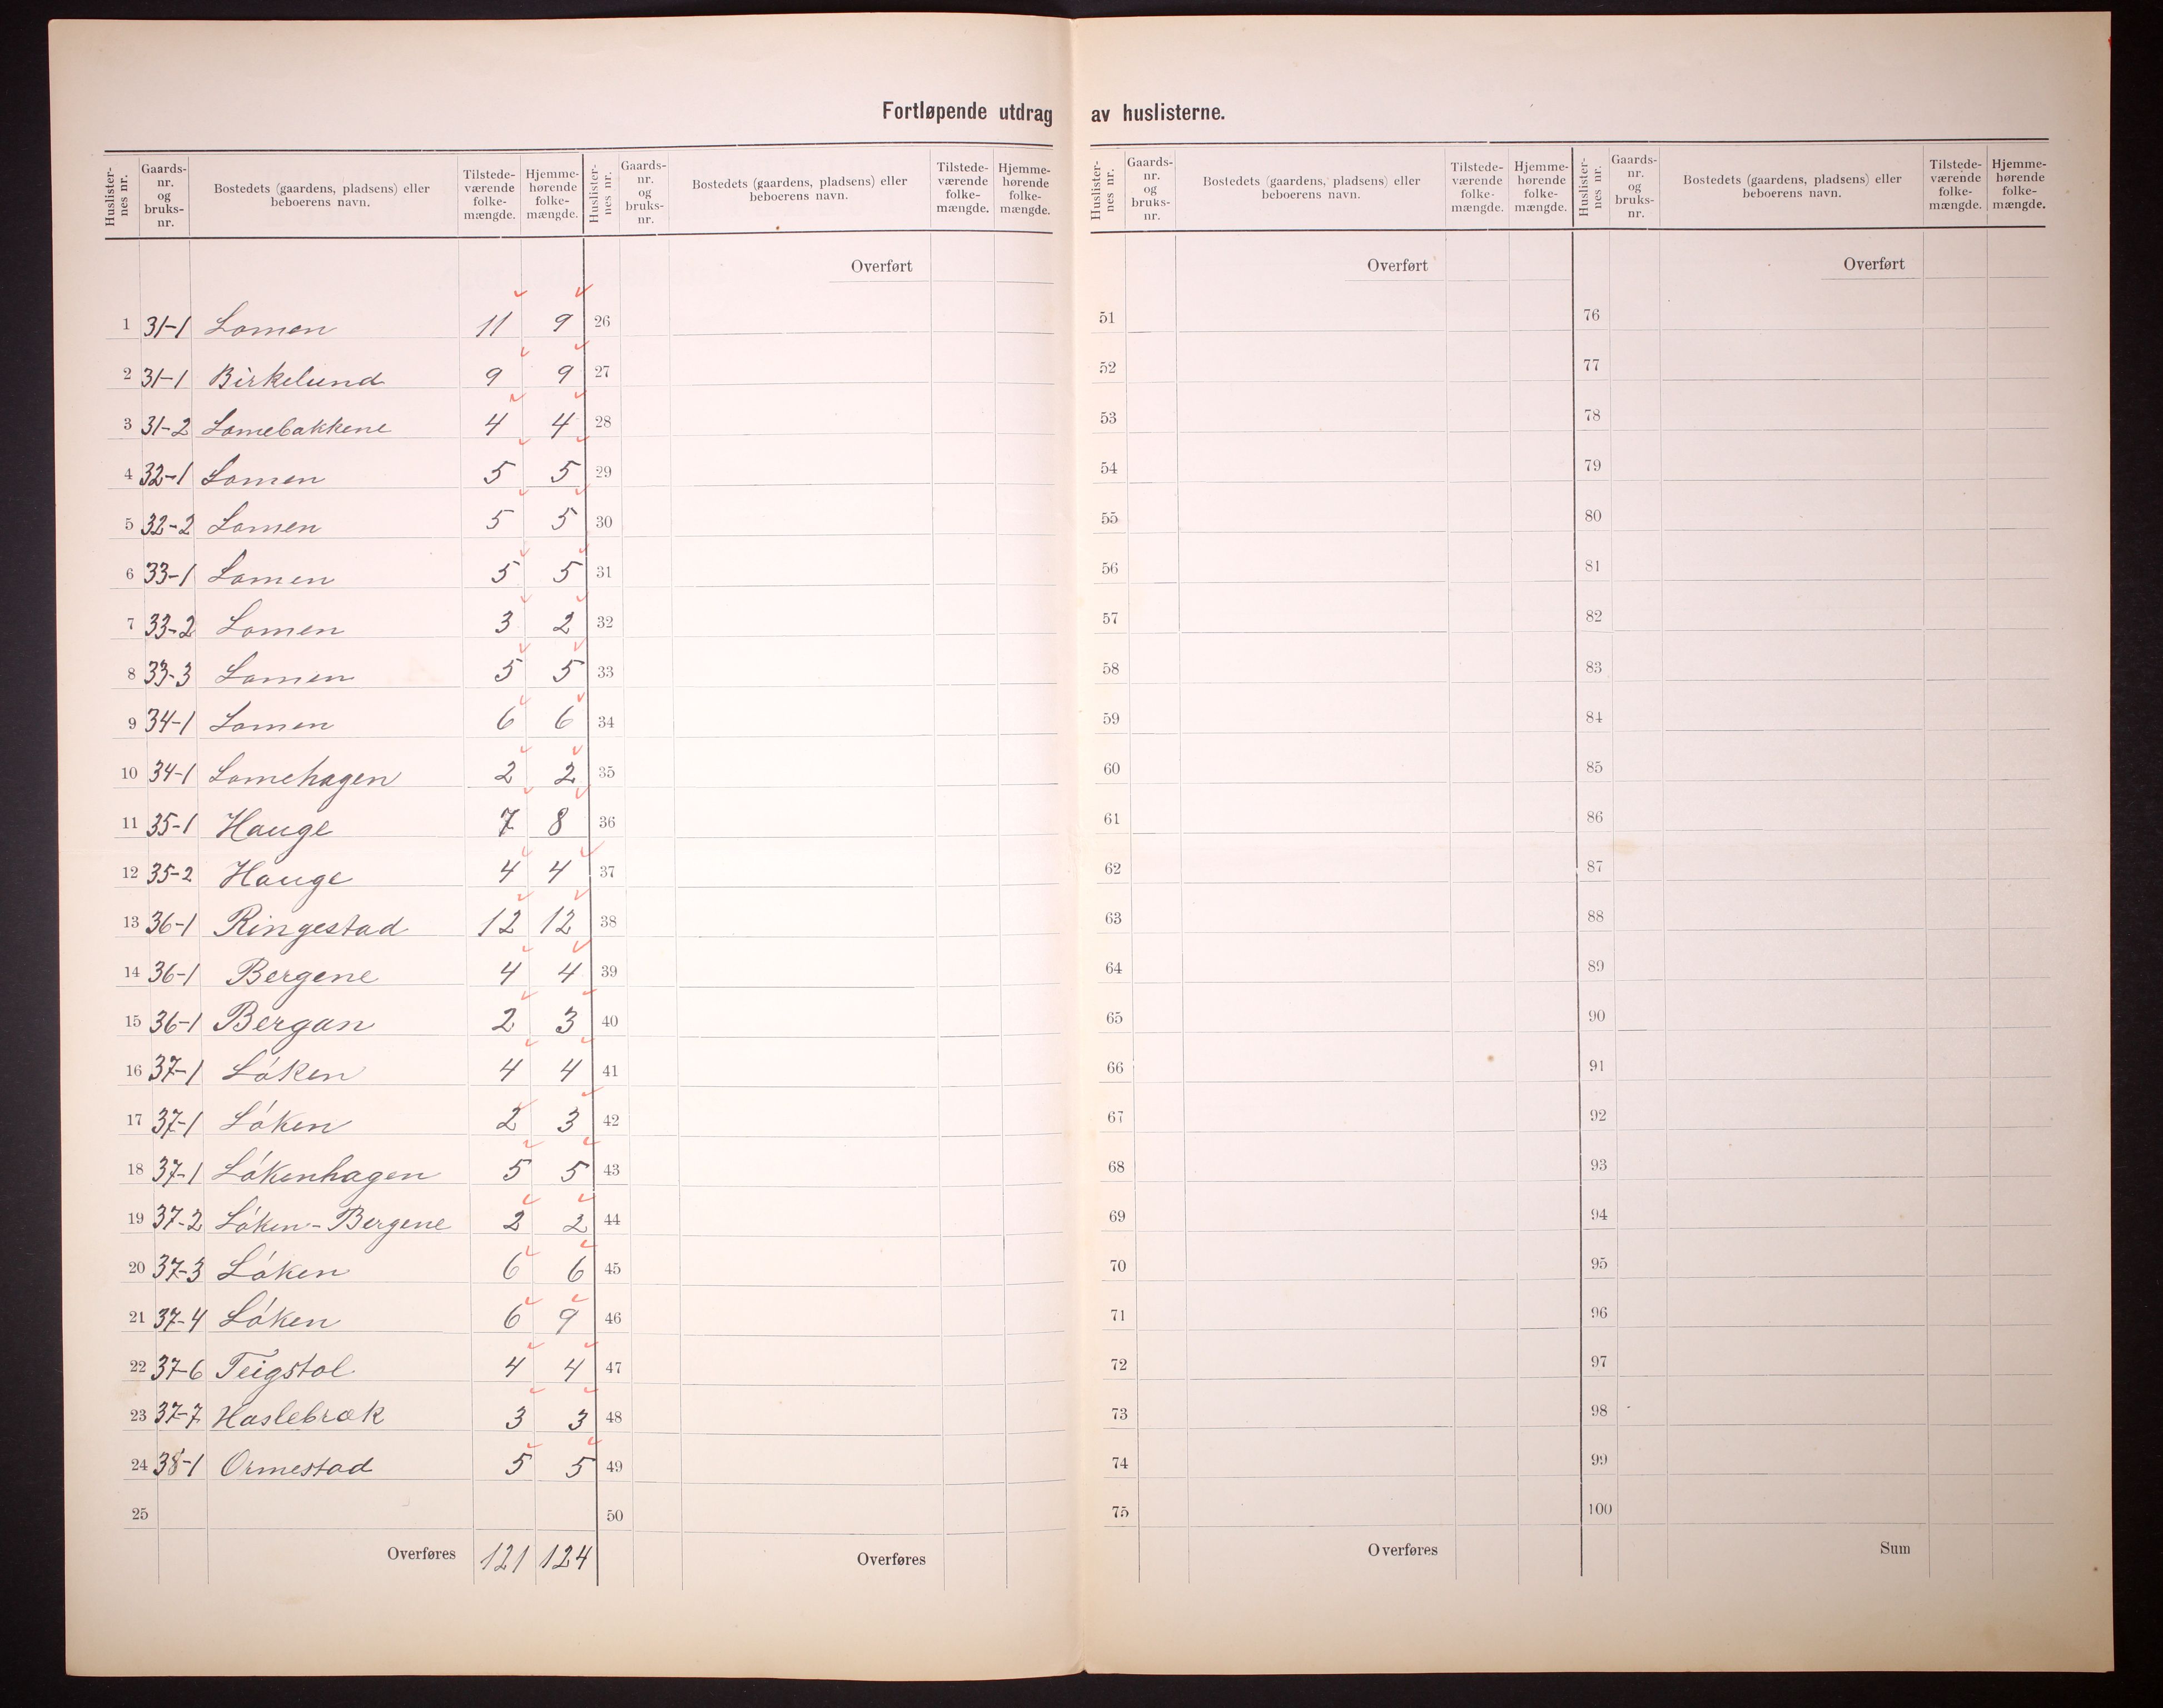 Fortløpende utdrag av huslisterne.
Huslister-nes nr. Gaards-nr. og bruks-nr. Bostedets (gaardens, pladsens) eller beboerens navn. Tilstede-værende folke-mængde. Hjemme-hørende folke-mængde.
1 31-1 Lomen 11 9
2 31-1 Birkelund 9 9
3 31-2 Lomebakkene 4 4
4 32-1 Lomen 5 5
5 32-2 Lomen 5 5
6 33-1 Lomen 5 5
7 33-2 Lomen 3 2
8 33-3 Lomen 5 5
9 34-1 Lomen 6 6
10 34-1 Lomehagen 2 2
11 35-1 Hauge 7 8
12 35-2 Hauge 4 4
13 36-1 Ringestad 12 12
14 36-1 Bergene 4 4
15 36-1 Bergan 2 3
16 37-1 Lóken 4 4
17 37-1 Lóken 2 3
18 37-1 Lókenhagen 5 5
19 37-2 Lóken-Bergene 2 2
20 37-3 Lóken 6 6
21 37-4 Lóken 6 9
22 37-6 Teigstol 4 4
23 37-7 Haslebræk 3 3
24 38-1 Ormestad 5 5
25
Overføres 121 124
Huslister-nes nr. Gaards-nr. og bruks-nr. Bostedets (gaardens, pladsens) eller beboerens navn. Tilstede-værende folke-mængde. Hjemme-hørende folke-mængde.
Overført
26
27
28
29
30
31
32
33
34
35
36
37
38
39
40
41
42
43
44
45
46
47
48
49
50
Overføres
Huslister-nes nr. Gaards-nr. og bruks-nr. Bostedets (gaardens, pladsens) eller beboerens navn. Tilstede-værende folke-mængde. Hjemme-hørende folke-mængde.
Overført
51
52
53
54
55
56
57
58
59
60
61
62
63
64
65
66
67
68
69
70
71
72
73
74
75
Overføres
Huslister-nes nr. Gaards-nr. og bruks-nr. Bostedets (gaardens, pladsens) eller beboerens navn. Tilstede-værende folke-mængde. Hjemme-hørende folke-mængde.
Overført
76
77
78
79
80
81
82
83
84
85
86
87
88
89
90
91
92
93
94
95
96
97
98
99
100
Sum